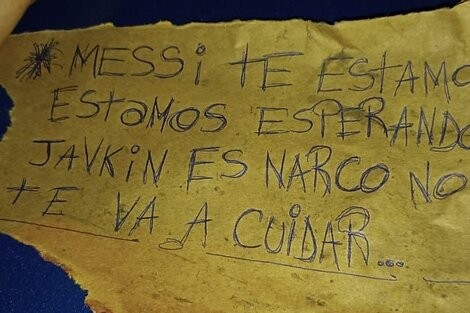 MESSi tE EStAMO
EStaMOS ESPERANDO
JAVKiN ES NARCO NO
tE VA A CUiDAR...